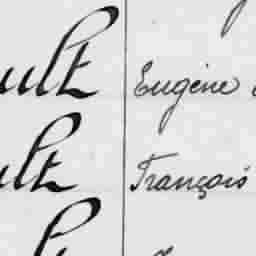 ult Eugène
ult François